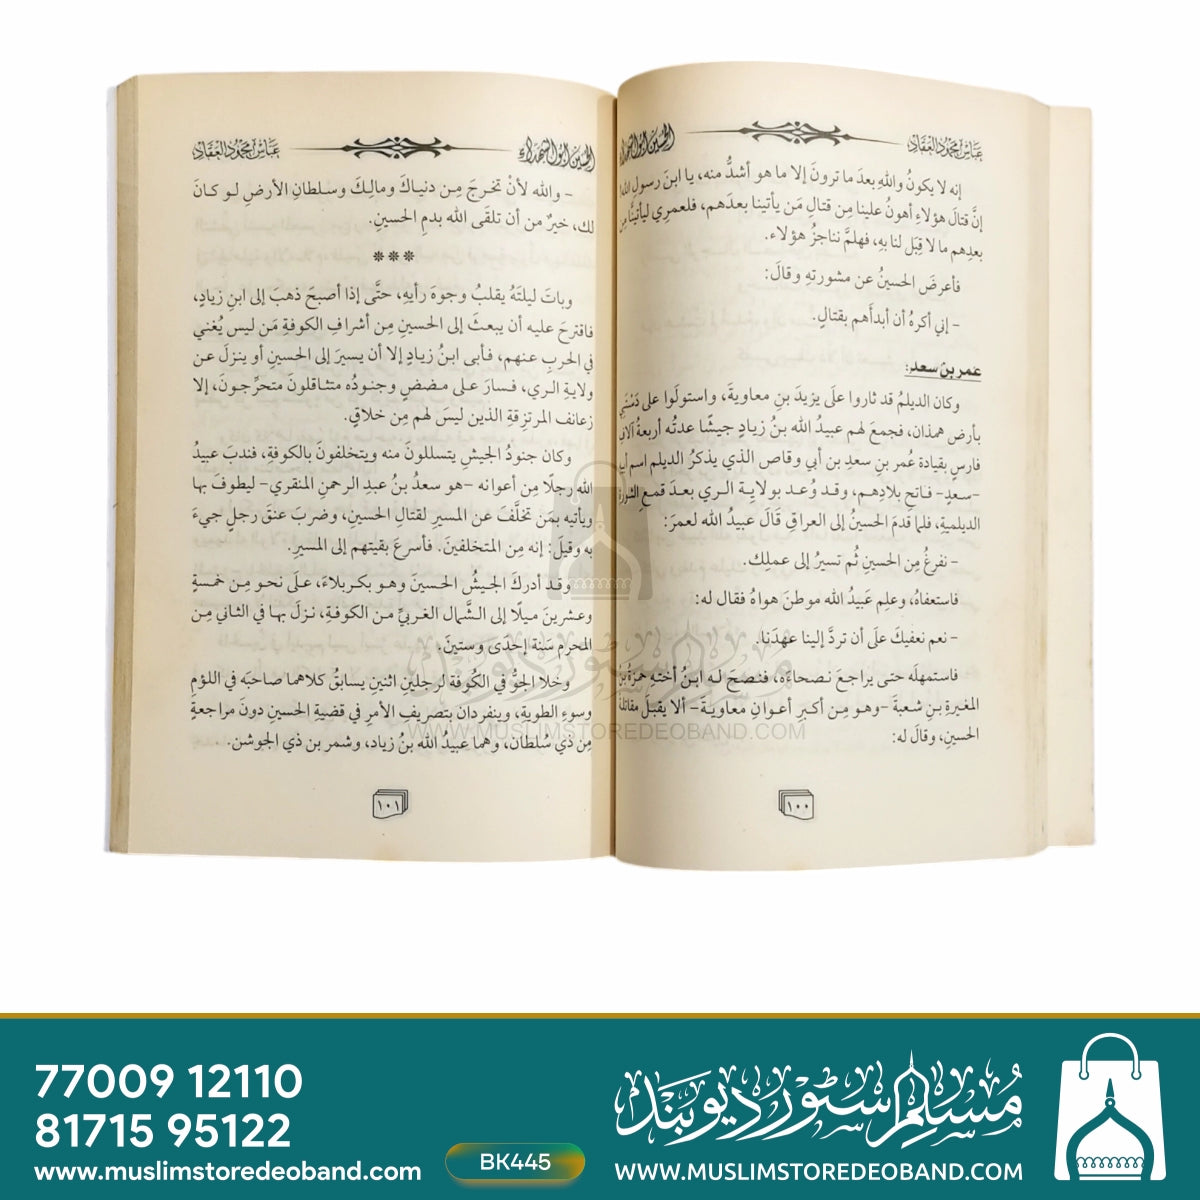 عباس محمود العقاد
الحسين أبو الشهداء
إنه لا يكونُ واللهِ بعدَ ما ترونَ إلا ما هو أشدُّ منه، يا ابنَ رسولِ الله!
إنَّ قتالَ هؤلاءِ أهونُ علينا مِن قتالِ مَن يأتينا بعدَهم، فلعمرِي ليأتينَّا مِن
بعدِهم ما لا قِبَل لنا بِهِ، فهلمَّ نناجزُ هؤلاء.
فأعرضَ الحسينُ عن مشورتهِ وقالَ:
- إني أكرهُ أن أبدأَهم بقتالٍ.
عمر بن سعد:
وكان الديلمُ قد ثاروا علَى يزيدَ بنِ معاويةَ، واستولَوا على دَسْتَبَي
بأرضِ همذان، فجمعَ لهم عبيدُ الله بنُ زيادٍ جيشًا عدتُه أربعةُ آلافِ
فارسٍ بقيادةِ عُمر بنِ سعدِ بن أبي وقاص الذي يذكرُ الديلم اسم أبيه
-سعدٍ- فاتحِ بلادِهم، وقد وُعد بولايةِ الري بعدَ قمعِ الثورةِ
الديلميةِ، فلما قدمَ الحسينُ إلى العراقِ قَالَ عبيدُ الله لعمرَ:
- نفرغُ مِن الحسينِ ثُم تسيرُ إلى عملِك.
فاستعفاهُ، وعلِم عَبيدُ الله موطنَ هواهُ فقال له:
- نعم نعفيكَ علَى أن تردَّ إلينا عهدَنا.
فاستمهلَه حتى يراجعَ نصحاءَه، فنصحَ له ابنُ أختهِ حمزةُ بنُ
المغيرةِ بنِ شعبةَ -وهو مِن أكبرِ أعوانِ معاويةَ- ألا يقبلَ مقاتلةَ
الحسينِ، وقالَ له:
١٠٠
الحسين أبو الشهداء
عباس محمود العقاد
- والله لأنْ تخرجَ مِن دنياكَ ومالِكَ وسلطانِ الأرضِ لو كانَ
لك، خيرٌ من أن تلقَى الله بدمِ الحسينِ.
***
وباتَ ليلتَهُ يقلبُ وجوهَ رأيهِ، حتَّى إذا أصبحَ ذهبَ إلى ابنِ زيادٍ،
فاقترحَ عليه أن يبعثَ إلى الحسينِ مِن أشرافِ الكوفةِ مَن ليس يُغني
في الحربِ عنهم، فأبى ابنُ زيادٍ إلا أن يسيرَ إلى الحسينِ أو ينزلَ عن
ولايةِ الري، فسارَ على مضضٍ وجنودُه متثاقلونَ متحرِّجونَ، إلا
زعانف المرتزقةِ الذين ليسَ لهم مِن خلاقٍ.
وكان جنودُ الجيشِ يتسللونَ منه ويتخلفونَ بالكوفةِ، فندبَ عبيدُ
الله رجلًا مِن أعوانه -هو سعدُ بنُ عبدِ الرحمنِ المنقري- ليطوفَ بها
ويأتيه بمَن تخلَّفَ عن المسيرِ لقتالِ الحسينِ، وضربَ عنقَ رجلٍ جيءَ
به وقيلَ: إنه مِن المتخلفينَ. فأسرعَ بقيتهم إلى المسيرِ.
وقد أدركَ الجيشُ الحسينَ وهو بكربلاءَ، علَى نحوٍ من خمسةٍ
وعشرينَ ميلًا إلى الشَّمالِ الغربيِّ مِن الكوفةِ، نزلَ بها في الثاني مِن
المحرمِ سَنة إحْدَى وستينَ.
وخلا الجوُّ في الكُوفة لرجلينِ اثنينِ يسابقُ كلاهما صاحبَه في اللؤمِ
وسوءِ الطويةِ، وينفردان بتصريفِ الأمرِ في قضيةِ الحسينِ دونَ مراجعةٍ
مِن ذي سُلطان، وهما عبيدُ الله بنُ زياد، وشمر بن ذي الجوشن.
١٠١
مسلم ستور ديوبند
WWW.MUSLIMSTOREDEOBAND.COM
77009 12110
81715 95122
www.muslimstoredeoband.com
BK445
مسلم ستور ديوبند
WWW.MUSLIMSTOREDEOBAND.COM